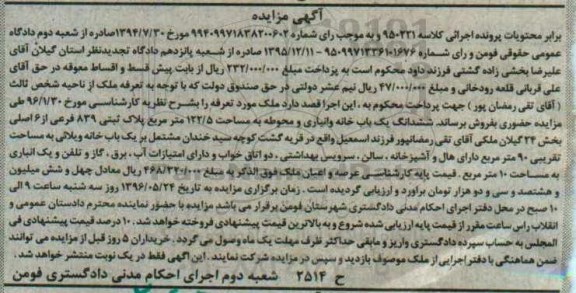 آگهی مزایده
برابر محتویات پرونده اجرائی کلاسه ۹۵۰۲۲۱ و به موجب رای شماره ۹۹۴۰۹۹۷۱۸۳۸۲۰۰۶۰۲ مورخ ۱۳۹۴/۷/۳۰ صادره از شعبه دوم دادگاه
عمومی حقوقی فومن و رای شماره ۹۵۰۹۹۷۱۳۳۶۱۰۱۶۷۶ - ۱۳۹۵/۱۲/۱۱ صادره از شعبه پانزدهم دادگاه تجدیدنظر استان گیلان آقای
علیرضا بخشی زاده گشتی فرزند داود محکوم است به پرداخت مبلغ ۲۳۲/۰۰۰/۰۰۰ ریال از بابت پیش قسط و اقساط معوقه در حق آقای
علی قربانی قلعه رودخانی و مبلغ ۴۷/۰۰۰/۰۰۰ ریال نیم عشر دولتی در حق صندوق دولت که با توجه به تعرفه ملک از ناحیه شخص ثالث
( آقای تقی رمضان پور ) جهت پرداخت محکوم به ، این اجرا قصد دارد ملک مورد تعرفه را بشرح نظریه کارشناسی مورخ ۹۶/۱/۳۰ طی
مزایده حضوری بفروش برساند. ششدانگ یک باب خانه وانباری و محوطه به مساحت ۱۲۲/۵ متر مربع پلاک ثبتی ۸۳۹ فرعی از ۶ اصلی
بخش ۲۳ گیلان ملکی آقای تقی رمضانپور فرزند اسمعیل واقع در قریه گشت کوچه سید خندان مشتمل بر یک باب خانه ویلائی به مساحت
تقریبی ۹۰ متر مربع دارای هال و آشپزخانه ، سالن ، سرویس بهداشتی ، دو اتاق خواب و دارای امتیازات آب ، برق ، گاز و تلفن و یک انباری
به مساحت ۱۰ متر مربع . قیمت پایه کارشناسی عرصه و اعیان ملک فوق الذکر به مبلغ ریال معادل چهل و شش میلیون
و هشتصد و سی و دو هزار تومان برآورد و ارزیابی گردیده است . زمان برگزاری مزایده به تاریخ ۱۳۹۶/۰۵/۲۴ روز سه شنبه ساعت ۹ الی
۱۰ صبح در محل دفتر اجرای احکام مدنی دادگستری شهرستان فومن برقرار می باشد مزایده با حضور نماینده محترم دادستان عمومی و
انقلاب راس ساعت مقرر از قیمت پایه ارزیابی شده شروع و به بالاترین قیمت پیشنهادی فروخته خواهد شد. ۱۰ درصد قیمت پیشنهادی فی
المجلس به حساب سپرده دادگستری واریز و مابقی حداکثر ظرف مهلت یک ماه وصول می گردد . خریداران ۵ روز قبل از مزایده می توانند
ضمن هماهنگی با دفتر اجرا یی از ملک موصوف بازدید و سپس در مزایده شرکت نمایند . این آگهی فقط در یک نوبت منتشر خواهد شد .
ح ۲۵۱۴ شعبه دوم اجرای احکام مدنی دادگستری فومن